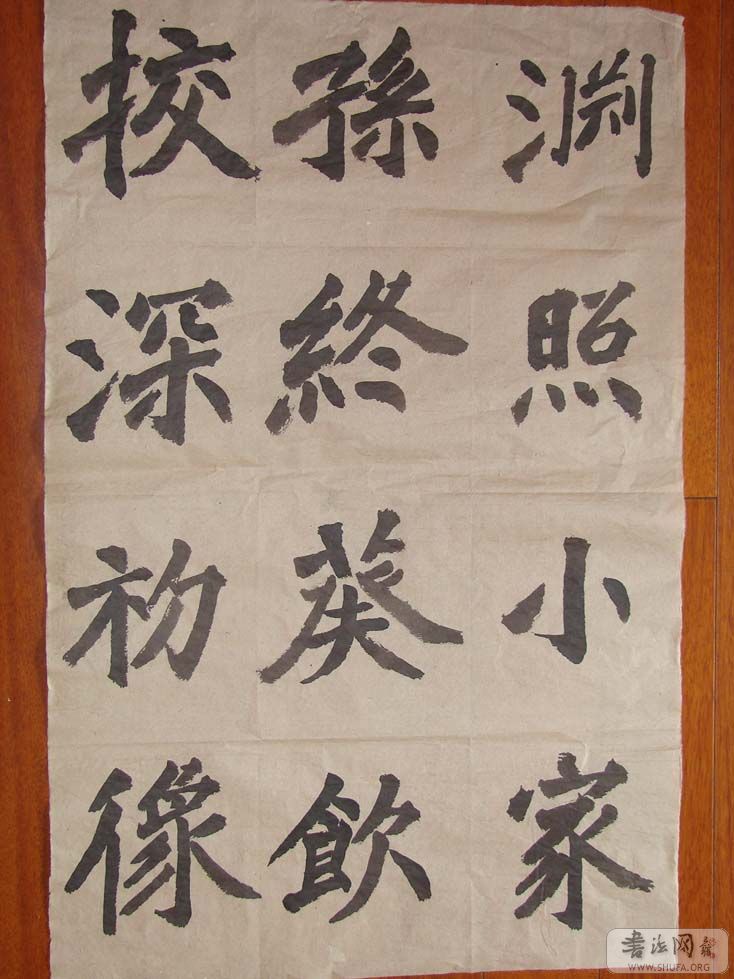 渊照小家
孫終葵飲
挍深初像
書法网
WWW.SHUFA.ORG